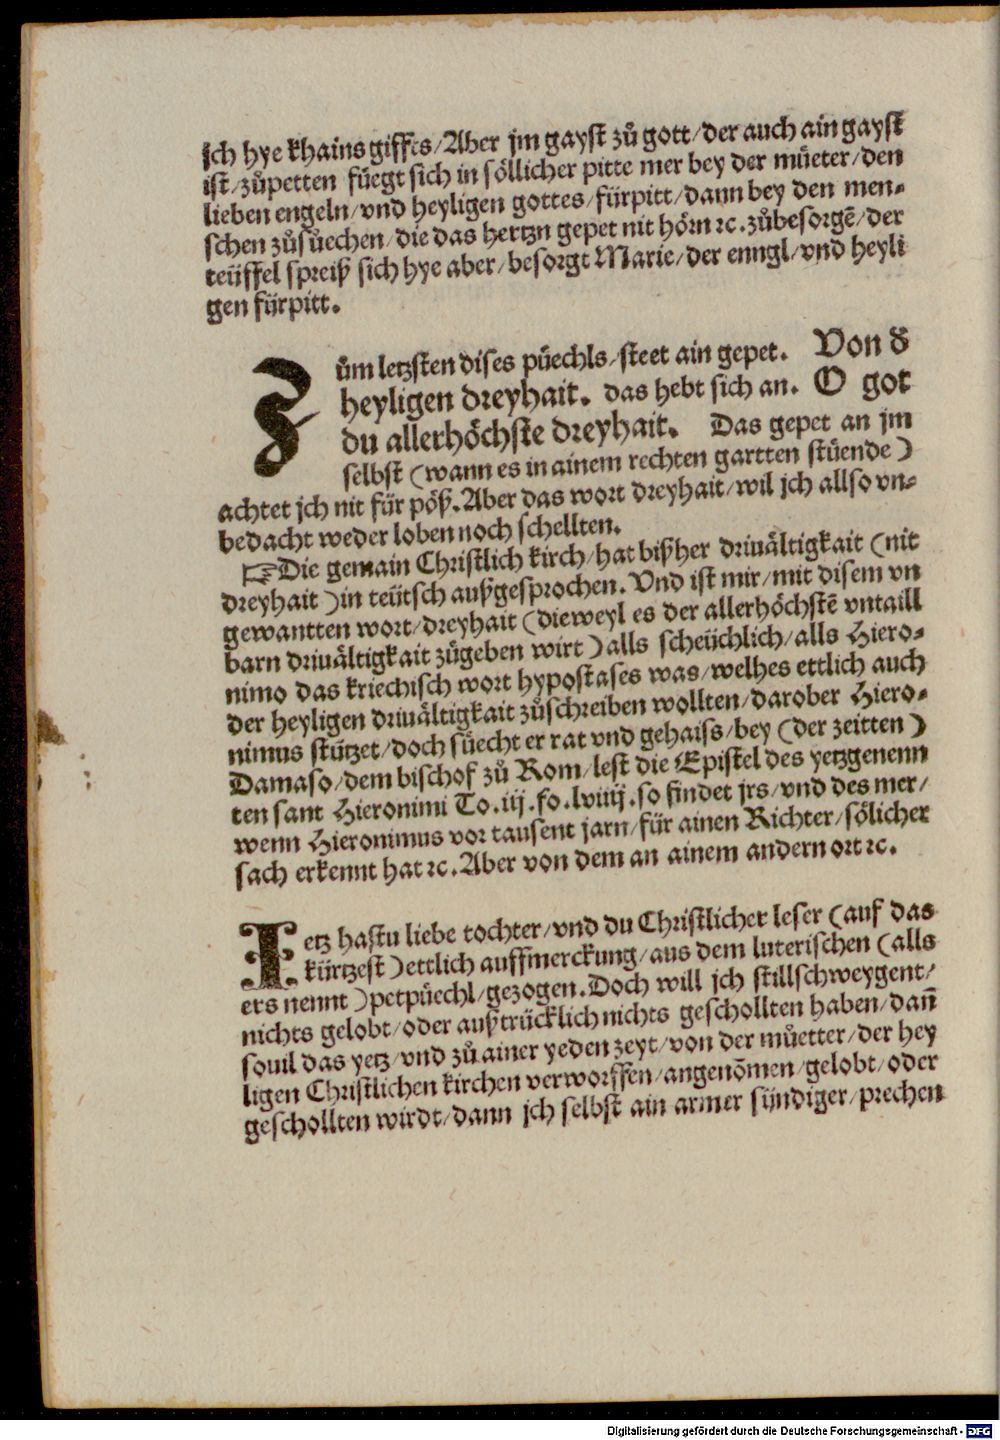 jch hye khains giffts/Aber jm gayst zů gott/der auch ain gayst
ist/zůpetten füegt sich in söllicher pitte mer bey der müeter/den
lieben engeln/vnd heyligen gottes/fürpitt/dann bey den men⸗
schen zůsůechen/die das hertzn gepet nit hörn ꝛc.zůbesorgē/der
teüffel spreiß sich hye aber/besorgt Marie/der enngl/vnd heyli
gen fürpitt.
Zům letzsten dises püechls/steet ain gepet. Von d̕
heyligen dreyhait. das hebt sich an. O got
du allerhöchste dreyhait. Das gepet an jm
selbst (wann es in ainem rechten gartten stüende)
achtet jch nit für pöß.Aber das wort dreyhait/wil jch allso vn⸗
bedacht weder loben noch schellten.
☞Die gemain Christlich kirch/hat bißher driuältigkait (nit
dreyhait)in teütsch außgesprochen.Vnd ist mir/mit disem vn
gewantten wort/dreyhait (dieweyl es der allerhöchstē vntaill
barn driuältigkait zůgeben wirt)alls scheüchlich/alls Hiero⸗
nimo das kriechisch wort hypostases was/welhes ettlich auch
der heyligen driuältigkait zůschreiben wollten/darober Hiero⸗
nimus stützet/doch süecht er rat vnd gehaiss/bey (der zeitten)
Damaso/dem bischof zů Rom/lest die Epistel des yetzgenenn
ten sant Hieronimi To.iij.fo.lviiij.so findet jrs/vnd des mer/
wenn Hieronimus vor tausent jarn/für ainen Richter/sölicher
sach erkennt hat ꝛc.Aber von dem an ainem andern ort ꝛc.
Ietz hastu liebe tochter/vnd du Christlicher leser (auf das
kürtzest)ettlich auffmerckung/aus dem luterischen (alls
ers nennt)petpüechl/gezogen.Doch will jch stillschweygent/
nichts gelobt/oder außtrücklich nichts geschollten haben/dañ
souil das yetz/vnd zů ainer yeden zeyt/von der můetter/der hey
ligen Christlichen kirchen verworffen/angenōmen/gelobt/oder
geschollten wirdt/dann jch selbst ain armer sündiger/prechen
Digitalisierung gefördert durch die Deutsche Forschungsgemeinschaft - DFG